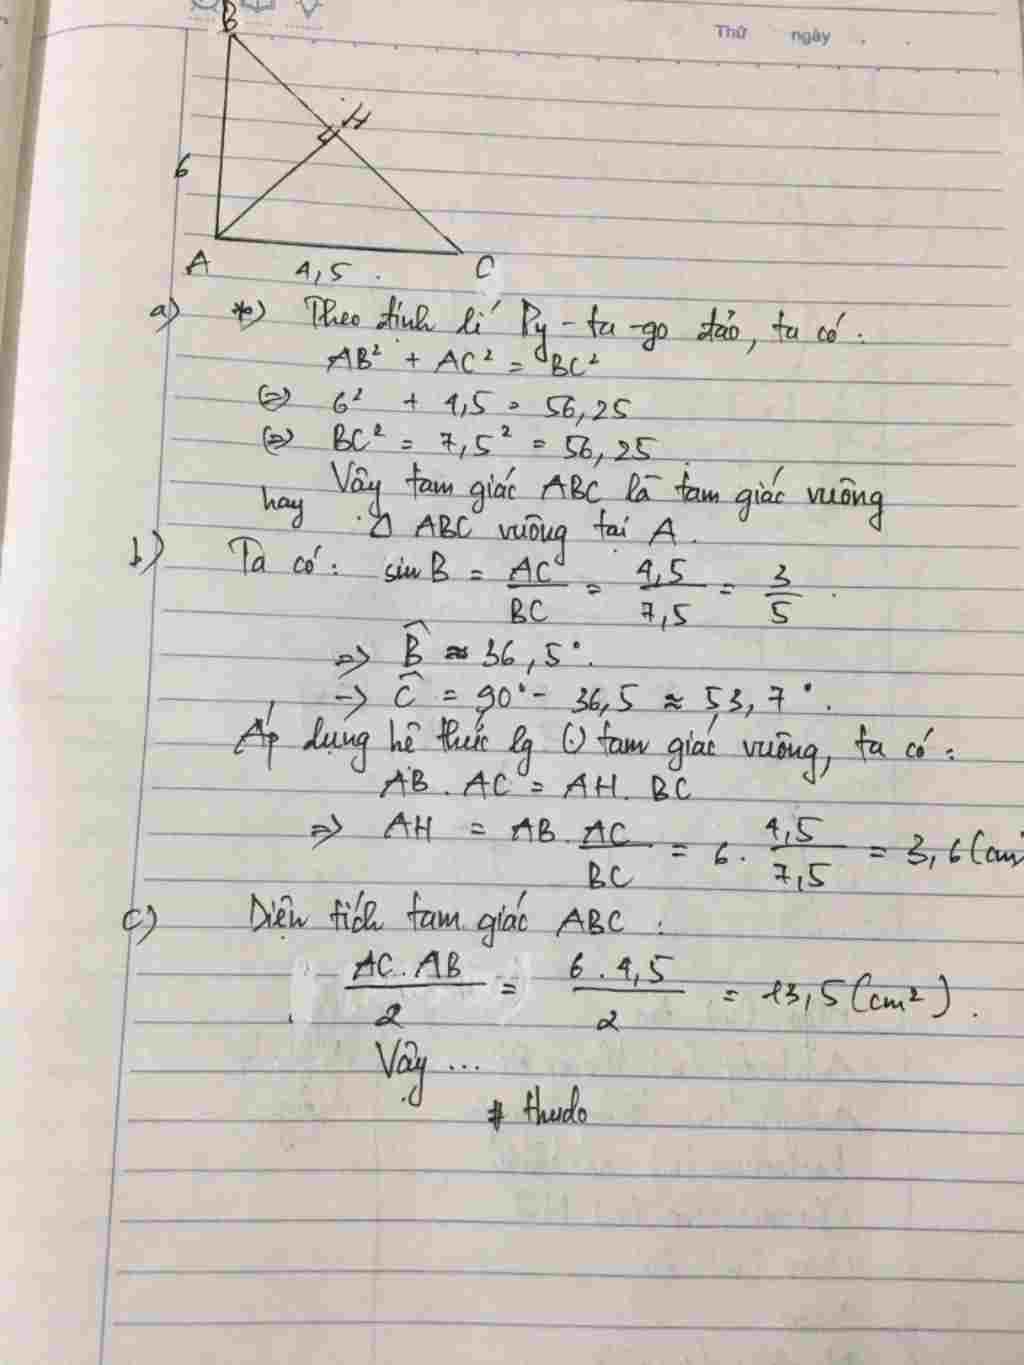 Thứ ngày
B
H
6
A
4,5
C
a) *) Theo định lí Py-ta-go đảo, ta có:
AB² + AC² = BC²
(=) 6² + 4,5 = 56,25
(=) BC² = 7,5² = 56,25
Vậy tam giác ABC là tam giác vuông
hay Δ ABC vuông tại A.
b) Ta có: sin B = AC/BC = 4,5/7,5 = 3/5.
=> B̂ ≈ 36,5°.
-> Ĉ = 90° - 36,5 ≈ 53,7°.
Áp dụng hệ thức lg (.) tam giác vuông, ta có:
AB . AC = AH . BC
=> AH = AB . AC/BC = 6 . 4,5/7,5 = 3,6 (cm
c) Diện tích tam giác ABC :
AC.AB/2 = 6.4,5/2 = 13,5 (cm²).
Vậy ...
# thudo